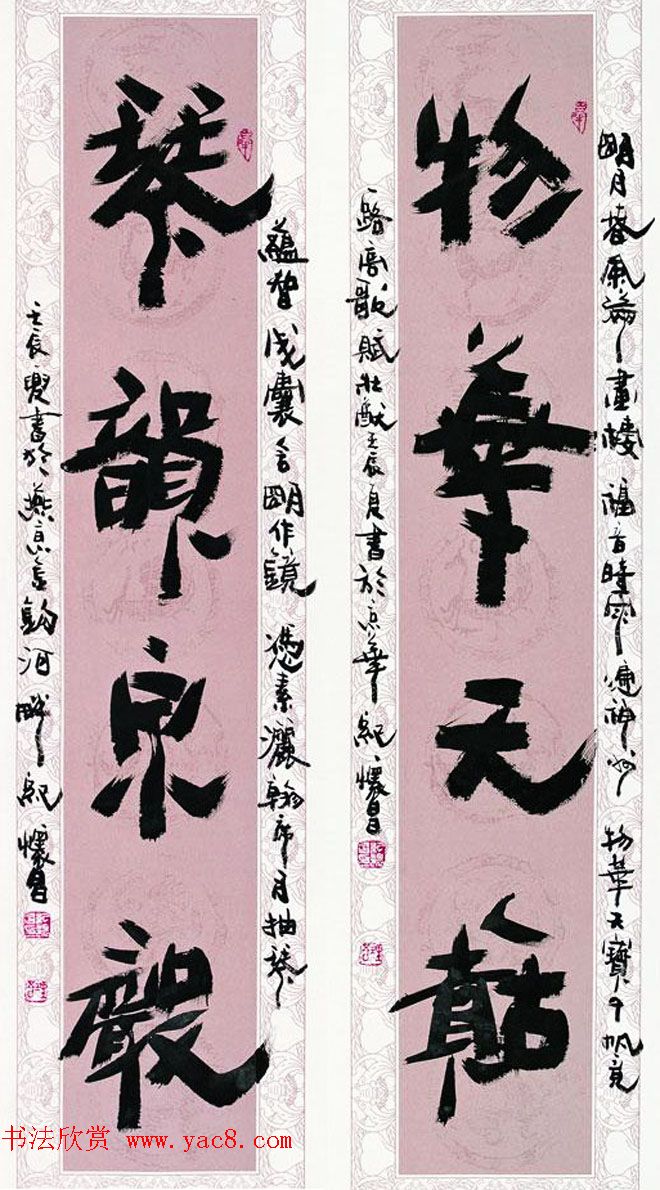 明月春風滿畫樓 福音時雨遍神州 物華天寶千帆競
物華天寶
一路高歌賦壯猷 壬辰夏書於京華 紀懷昌
蘊智成囊 含明作鏡 憑素灑翰 席月抽琴
琴韻泉聲
壬辰夏書於燕京金鉤河畔 紀懷昌
书法欣赏 www.yac8.com